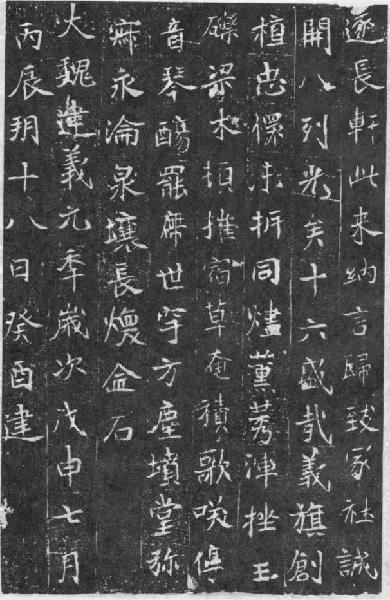 遂長軒此来納言歸致冢社誠
開八列光矣十六盛哉義旗創
植忠懷未折同燼薰蕕渾挫玉
礫梁木摧宿草奄積歌咲停
音琴觴罷席世方塵墳堂弥
寐永淪泉壤長金石
大魏建義元年歲次戊申七月
丙辰朔十八日癸酉建